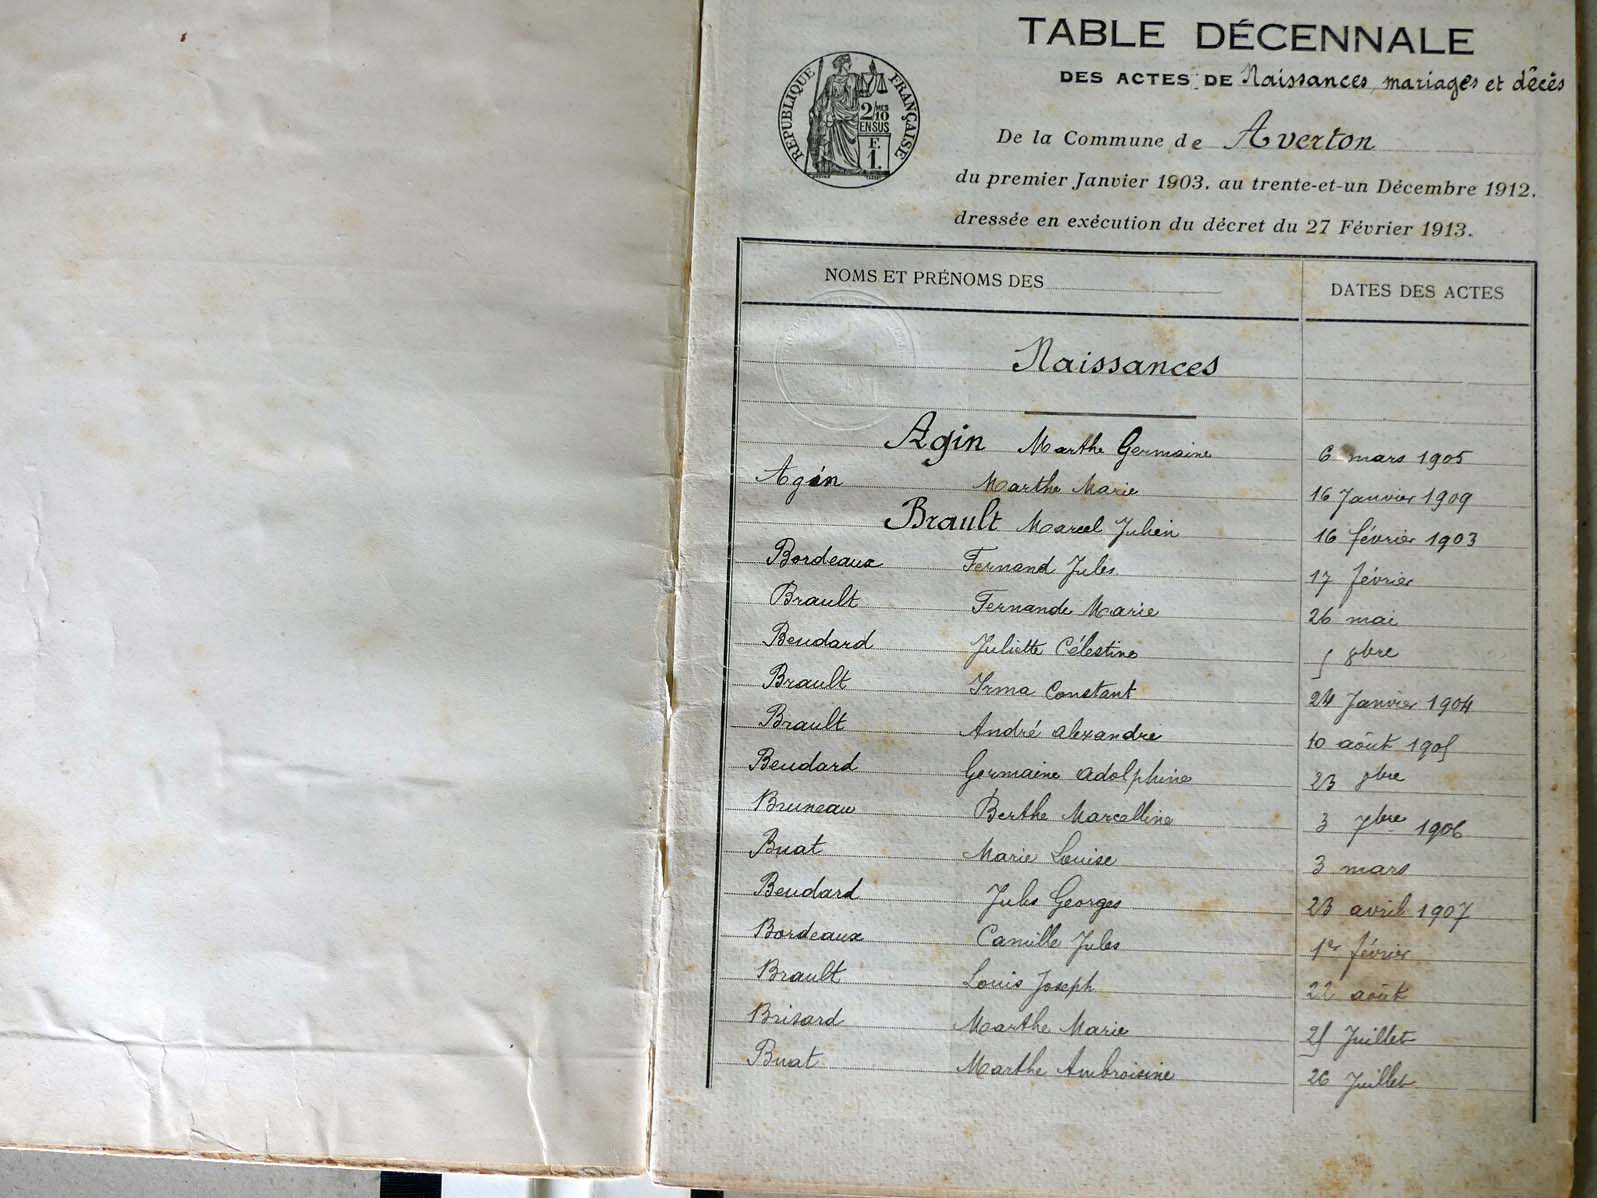 TABLE DÉCENNALE
DES ACTES DE Naissances, mariages et décès
RÉPUBLIQUE FRANÇAISE
2/10
EN SUS
F.
1.
De la Commune de Averton
du premier Janvier 1903. au trente-et-un Décembre 1912.
dressée en exécution du décret du 27 Février 1913.
NOMS ET PRÉNOMS DES DATES DES ACTES
Naissances
Agin Marthe Germaine 6 mars 1905
Agin Marthe Marie 16 Janvier 1909
Brault Marcel Julien 16 février 1903
Bordeaux Fernand Jules. 17 février
Brault Fernande Marie 26 mai
Beudard Juliette Célestine 5 8bre
Brault Irma Constant 24 Janvier 1904
Brault André Alexandre 10 août 1905
Beudard Germaine Adolphine 23 8bre
Bruneau Berthe Marcelline 3 7bre 1906
Buat Marie Louise 3 mars
Beudard Jules Georges 23 avril 1907
Bordeaux Camille Jules 1er février
Brault Louis Joseph 22 août
Brisard Marthe Marie 25 Juillet
Buat Marthe Ambroisine 26 Juillet